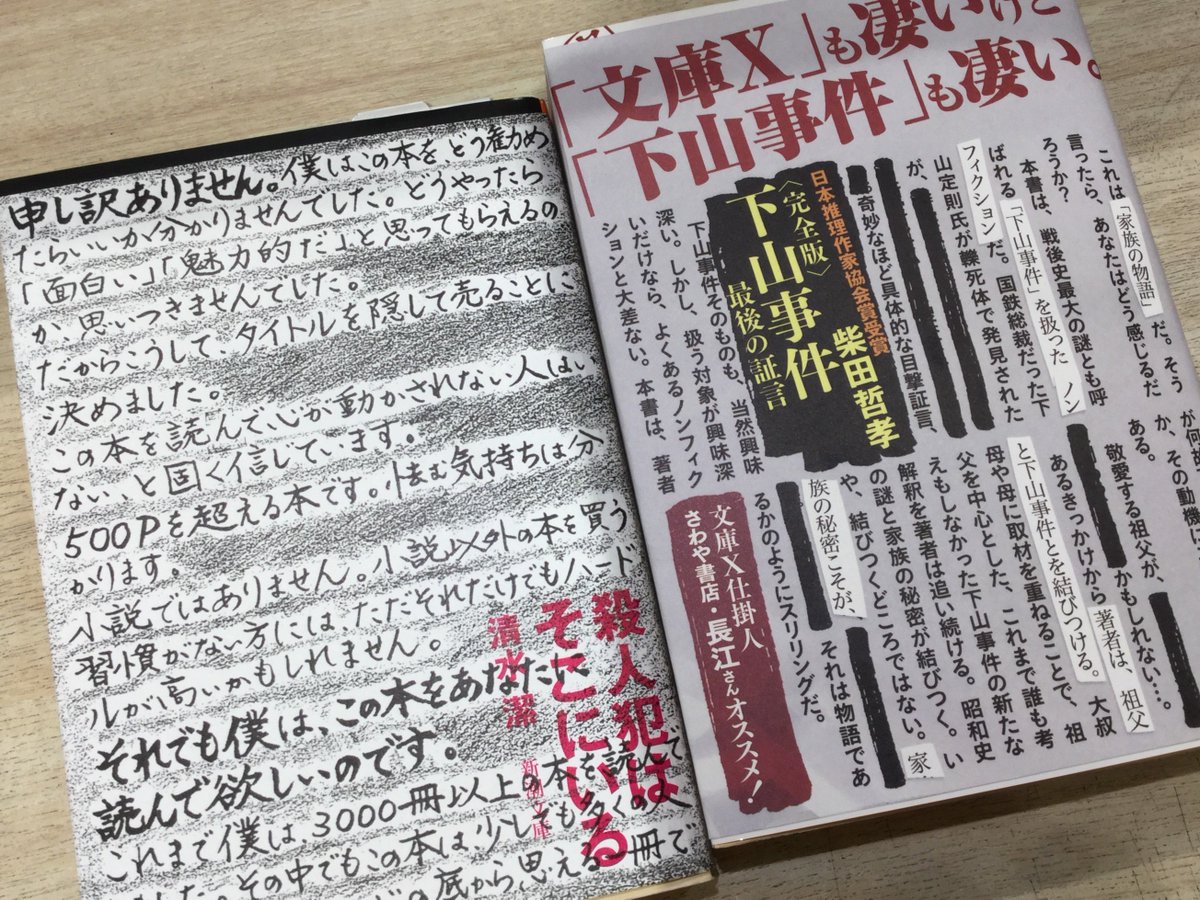 申し訳ありません。僕はこの本を、どう勧め
たらいいか分かりませんでした。どうやったら
「面白い」「魅力的だ」と思ってもらえるの
か、思いつきませんでした。
だからこうして、タイトルを隠して売ることに
決めました。
この本を読んで、心が動かされない人はい
ない、と固く信じています。
500Pを超える本です。怯む気持ちは分
かります。
小説ではありません。小説以外の本を買う
習慣がない方には、ただそれだけでもハード
ルが高いかもしれません。
それでも僕は、この本をあなたに
読んで欲しいのです。
これまで僕は、3000冊以上の本を読んで
きました。その中でもこの本は、少しでも多くの人
の底から思える一冊で
殺人犯は
そこにいる
清水潔
新潮文庫
「文庫X」も凄いけど
「下山事件」も凄い。
これは「家族の物語」だ。そう
言ったら、あなたはどう感じるだ
ろうか?
本書は、戦後史最大の謎とも呼
ばれる「下山事件」を扱った ノン
フィクションだ。国鉄総裁だった下
山定則氏が轢死体で発見された
が、
。奇妙なほど具体的な目撃証言、
日本推理作家協会賞受賞
柴田哲孝
〈完全版〉
下山事件
最後の証言
下山事件そのものも、当然興味
深い。しかし、扱う対象が興味深
いだけなら、よくあるノンフィク
ションと大差ない。本書は、著者
が何故
か、その動機に
ある。
敬愛する祖父が、
かもしれない…。
あるきっかけから著者は、祖父
と下山事件とを結びつける。大叔
母や母に取材を重ねることで、祖
父を中心とした、これまで誰も考
えもしなかった下山事件の新たな
解釈を著者は追い続ける。昭和史
の謎と家族の秘密が結びつく。い
や、結びつくどころではない。家
族の秘密こそが、
それは物語であ
るかのようにスリリングだ。
文庫X仕掛人
さわや書店・長江さんオススメ!